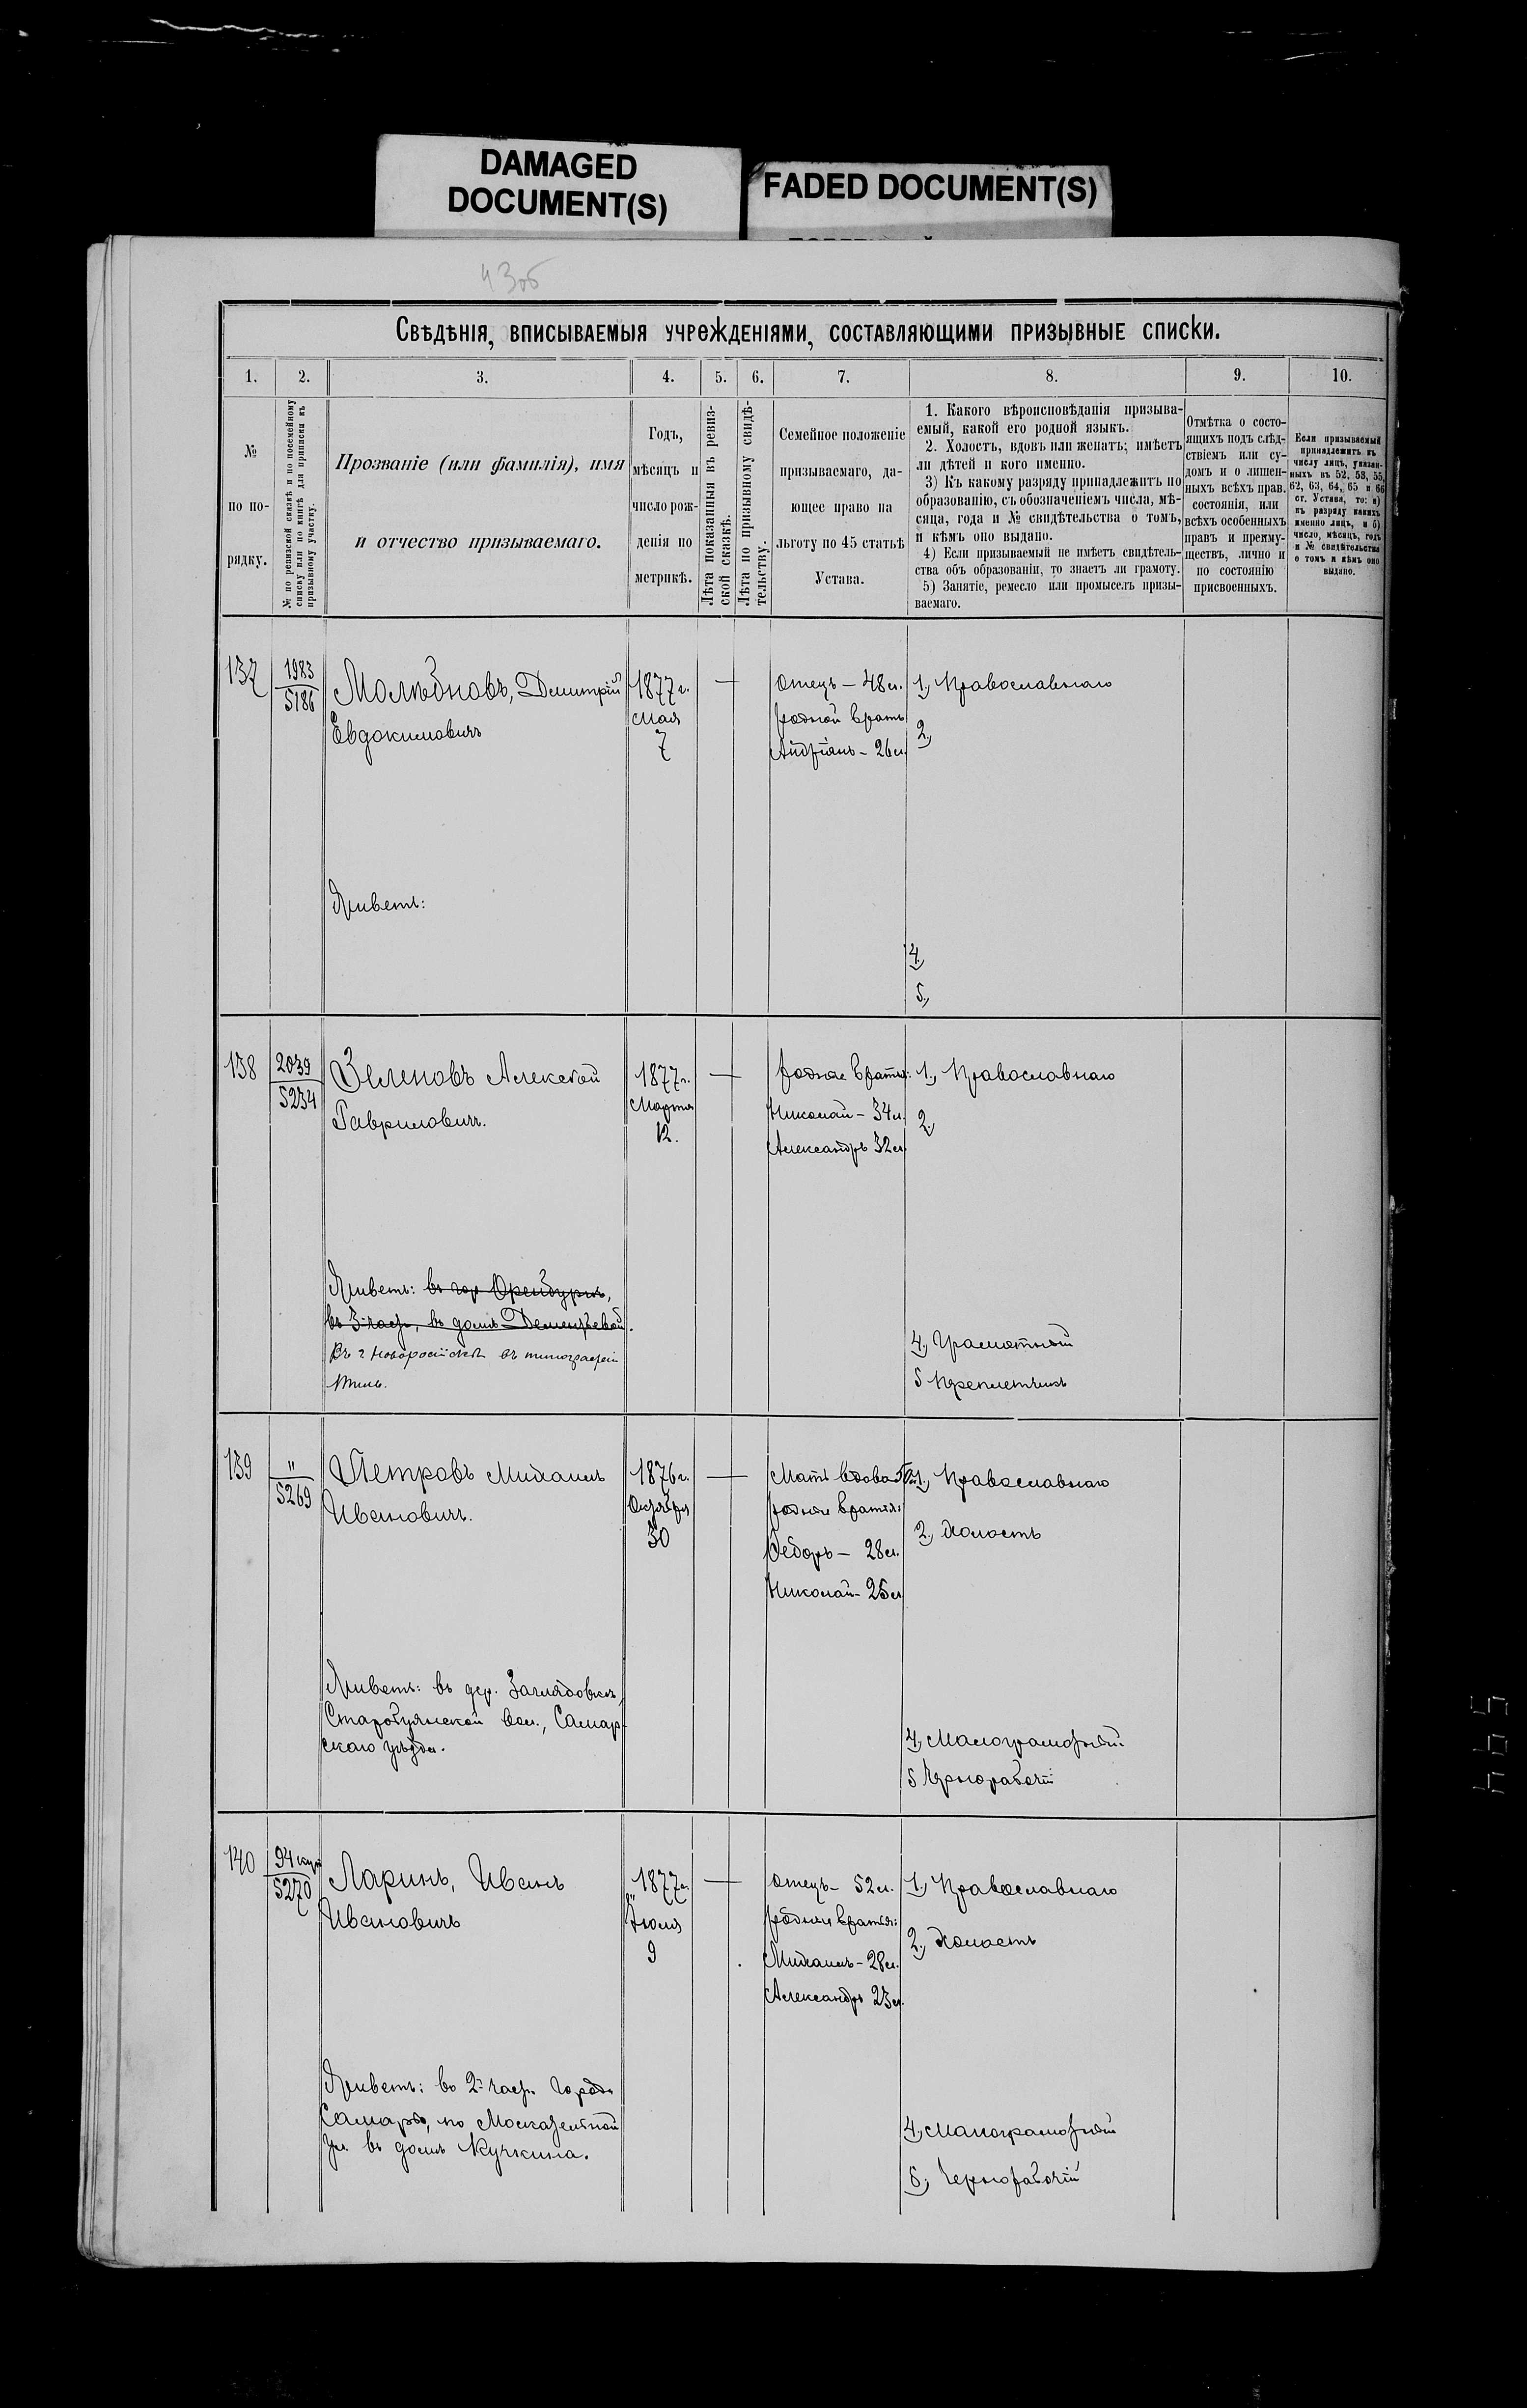 DAMAGED
DOCUMENT(S)
FADED DOCUMENT(S)
43об
Свѣдѣнія, вписываемыя учрежденіями, составляющими призывные списки.
1.
2.
3.
4.
5.
6.
7.
8.
9.
10.
№
по по-
рядку.
№ по ревизской сказкѣ и по посемейному
списку или по книгѣ для приписки къ
призывному участку.
Прозваніе (или фамилія), имя
и отчество призываемаго.
Годъ,
мѣсяцъ и
число рож-
денія по
метрикѣ.
Лѣта показанныя въ ревиз-
ской сказкѣ.
Лѣта по призывному свидѣ-
тельству.
Семейное положеніе
призываемаго, да-
ющее право на
льготу по 45 статьѣ
Устава.
1. Какого вѣроисповѣданія призыва-
емый, какой его родной языкъ.
2. Холостъ, вдовъ или женатъ; имѣетъ
ли дѣтей и кого именно.
3) Къ какому разряду принадлежитъ по
образованію, съ обозначеніемъ числа, мѣ-
сяца, года и № свидѣтельства о томъ,
и кѣмъ оно выдано.
4) Если призываемый не имѣетъ свидѣтель-
ства объ образованіи, то знаетъ ли грамоту.
5) Занятіе, ремесло или промыселъ призы-
ваемаго.
Отмѣтка о состо-
ящихъ подъ слѣд-
ствіемъ или су-
домъ и о лишен-
ныхъ всѣхъ прав.
состоянія, или
всѣхъ особенныхъ
правъ и преиму-
ществъ, лично и
по состоянію
присвоенныхъ.
Если призываемый
принадлежитъ къ
числу лицъ, указан-
ныхъ въ 52, 53, 55,
62, 63, 64, 65 и 66
ст. Устава, то: а)
къ разряду какихъ
именно лицъ, и б)
число, мѣсяцъ, годъ
и № свидѣтельства
о томъ и кѣмъ оно
выдано.
137
1983
5186
Димитрій
Евдокимовичъ
1877 г.
Мая
7
Отецъ – 48 л.
родной братъ
Андріанъ – 26 л.
1, Православнаго
2,
Живетъ:
4,
5,
138
2039
5234
Зеленовъ Алексѣй
Гавриловичъ.
1877 г.
Марта
12.
родные братья:
Николай – 34 л.
Александръ 32 л.
1, Православнаго
2,
Живетъ: въ гор Оренбургѣ,
въ 3 части, въ домѣ Дементьевой.
Въ г Новоросійскѣ въ типографіи
4, Грамотный
5 Переплетчикъ
139
"
5269
Петровъ Михаилъ
Ивановичъ.
1876 г.
Октября
30
Мать вдова
родные братья:
Федоръ – 28 л.
Николай – 25 л
1, Православнаго
2, Холостъ
Живетъ: въ дер.
вол., Самар-
скаго уѣзда.
4, Малограмотный
5 Чернорабочій
140
94
5270
Ларинъ, Иванъ
Ивановичъ
1877 г.
Іюля
9
Отецъ – 52 л.
родные братья:
Михаилъ – 28 л.
Александръ 23 л.
1, Православнаго
2, Холостъ
Живетъ: во 2й части города
Самары, по Москательной
ул. въ домѣ Кучкина.
4, Малограмотный
5, Чернорабочій
544